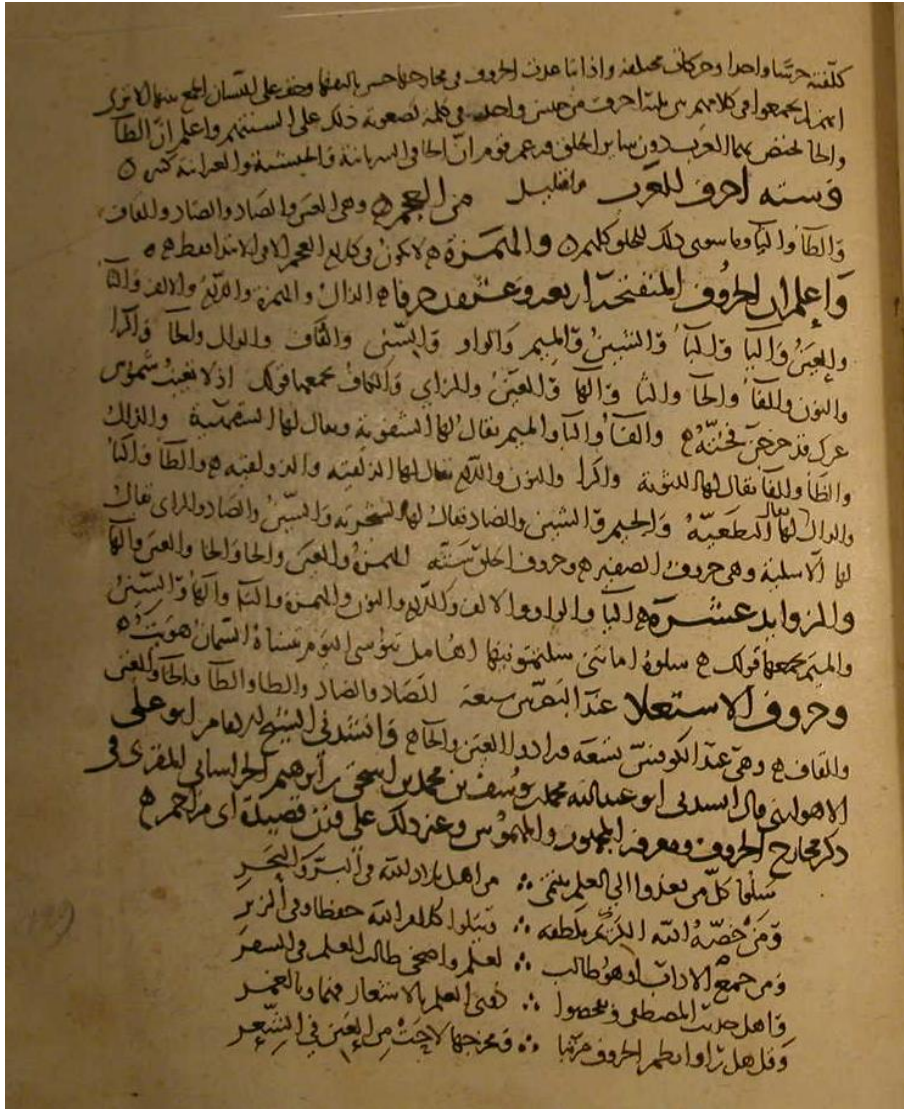 كلفته جرسا واحدا وحركات مختلفة واذا تباعدت الحروف في مخارجها حسن تاليفها وخف على اللسان الجمع بينها الا ترى
انهم لم يجمعوا في كلامهم بين ثلثة احرف من جنس واحد في كلمة لصعوبة ذلك على السنتهم واعلم ان الظا
والحا تختص بها العرب دون ساير الخلق وزعم قوم ان الحا في السريانية والحبشية والعبرانية كثيرة
وستة احرف للعرب والقليل من العجم وهي العين والصاد والضاد والقاف
والطا والثا وما سوى ذلك للخلق كلهم والهمزة لا تكون في كلام العجم الا في الابتدا فقط
واعلم ان الحروف المنفتحة اربعة وعشرون حرفا الذال والهمزة واللام والالف والتا
والعين واليا والبا والشين والميم والواو والسين والقاف والدال والحا والرا
والنون والفا والخا والثا والها والغين والزاي والكاف يجمعها قولك اذ لا تغيب شموس
والفا والبا والميم يقال لها الشفوية ويقال لها الشفهية والذال
والظا والثا يقال لها اللثوية والرا والنون واللام يقال لها الذلقية والذولقية والطا والتا
والدال يقال لها النطعية والجيم والشين والضاد يقال لها الشجرية والسين والصاد والزاي يقال
لها الاسلية وهي حروف الصفير وحروف الحلق ستة الهمزة والعين والحا والخا والغين والها
والزوايد عشرة اليا والواو والالف واللام والنون والهمزة والتا والها والسين
والميم يجمعها قولك سلوه امانتي سلتمونيها اليوم تنساه السمان هويت
وحروف الاستعلا عند البصريين سبعة الصاد والضاد والطا والظا والخا والغين
والقاف وهي عند الكوفيين تسعة فزادوا العين والحا وانشدني الشيخ الامام ابو علي
الاهوازي قال انشدني ابو عبد الله محمد بن يوسف بن محمد بن اسحق بن ابرهيم الخراساني المقري في
ذكر مخارج الحروف ومعرفة المجهور والمهموس وغير ذلك على قصيدة
كل من يعزوا الى العلم ينتمي من اهل بلاد الله في البر والبحر
ومن خصه الله الكريم بلطفه كلام الله حفظا وفي الزبر
ومن جمع الاداب او هو طالب لعلم واضحى طالب العلم في السفر
واهل حديث المصطفى
وقل هل الحروف مرتبا في الشعر